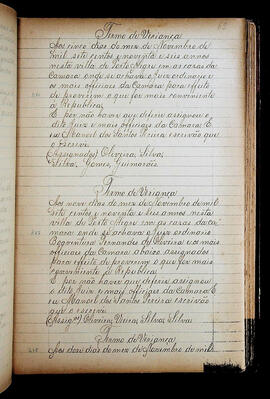 Termo de Veriança
Aos cinco dias do mez de Novembro de
mil sete centos e noventa e seis annos
nesta villa de Porto Alegre em as casas da
Camara onde se achava o Juiz ordinario e
os mais officiaes da Camara para effeito
de proverem o que for mais conveniente
á Republica,
E por não haver que deferir assignou o
dito Juiz e mais officiaes da Camara. E
eu Manoel dos Santos Pereira escrivão que
o escrevi
(Assignados) Oliveira, Silva,
Silva, Gomes, Guimarães.
Termo de Veriança
Aos nove dias do mez de Novembro de mil
sete centos e noventa e seis annos nesta
villa de Porto Alegre em as casas da Ca
mara onde se achava o Juiz ordinario
Boaventura Fernandes de Oliveira e os mais
officiaes da Camara abaixo assignados
para effeito de proverem o que for mais
conveniente á Republica.
E por não haver que deferir assignou
o dito Juiz e mais officiaes da Camara. E
eu Manoel dos Santos Pereira escrivão
que o escrevi
(Assigos) Oliveira, Vieira, Silva, Silva
Termo de Veriança
Aos doze dias do mez de Novembro de mil